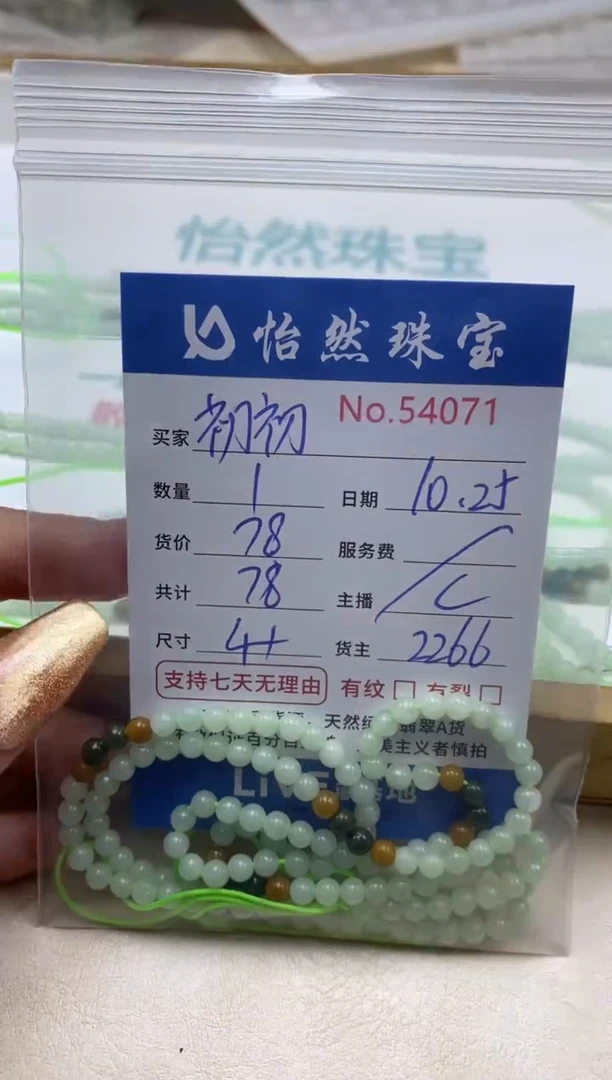 怡然珠宝
怡然珠宝
No.54071
买家 初初
数量 1 日期 10.25
货价 78 服务费 /
共计 78 主播 C
尺寸 4+ 货主 2266
支持七天无理由 有纹 □ 有裂 □
天然 翡翠A货
百分百 美主义者慎拍
LIVE 基地